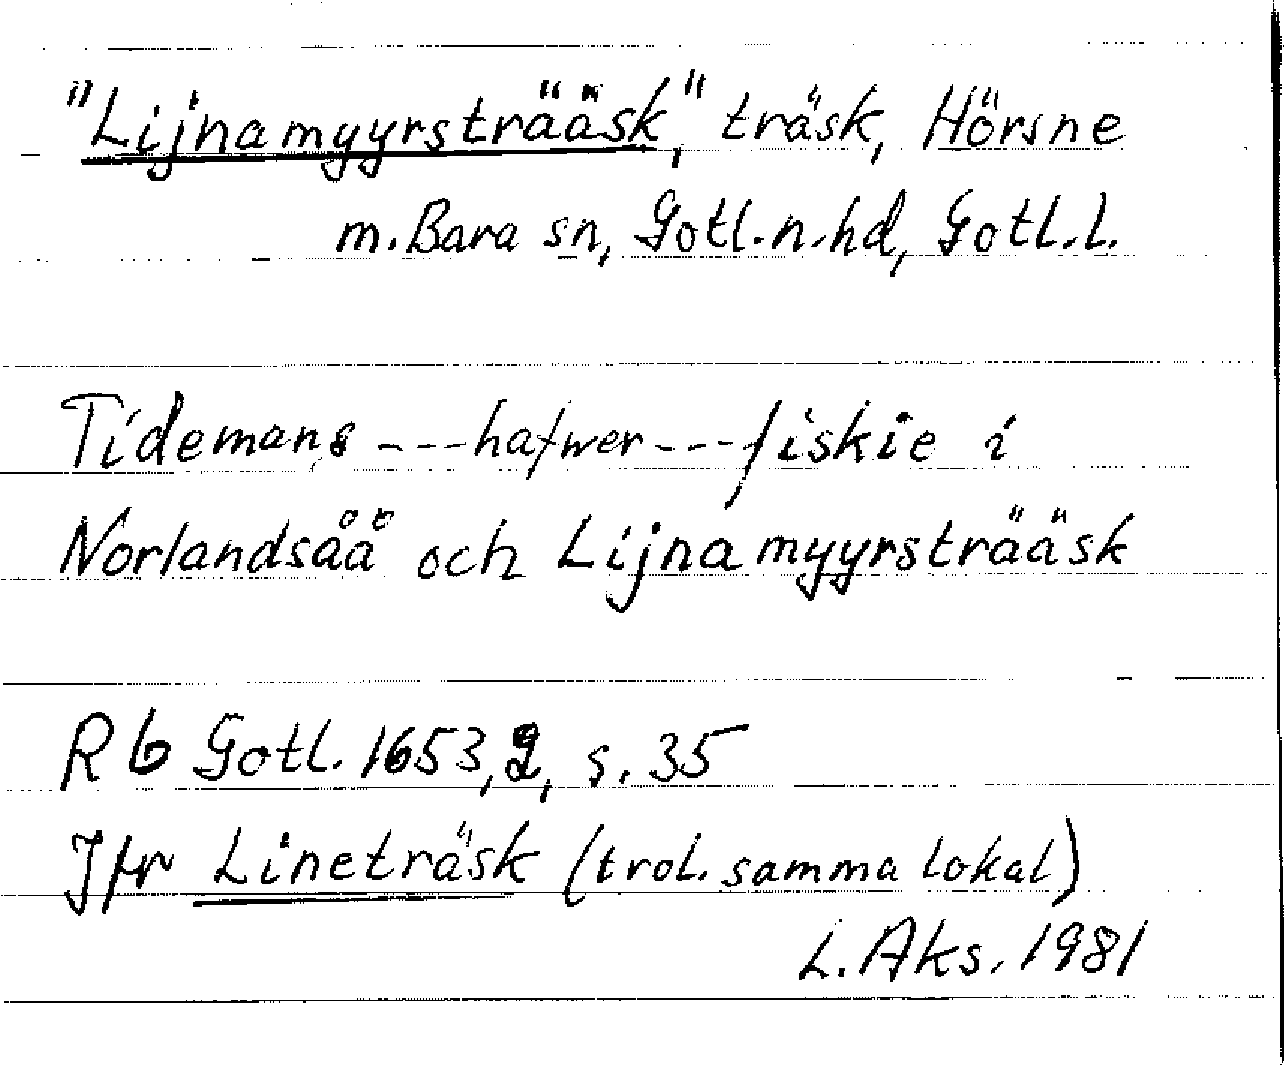 "Lijnamyyrsträäsk," träsk, Hörsne
m. Bara sn, Gotl.n.hd, Gotl.l.
Tidemans --- hafwer --- fiskie i
Norlandsåå och Lijnamyyrsträäsk
Rb Gotl. 1653,2, s. 35
Jfr Lineträsk (trol. samma lokal)
L. Aks. 1981